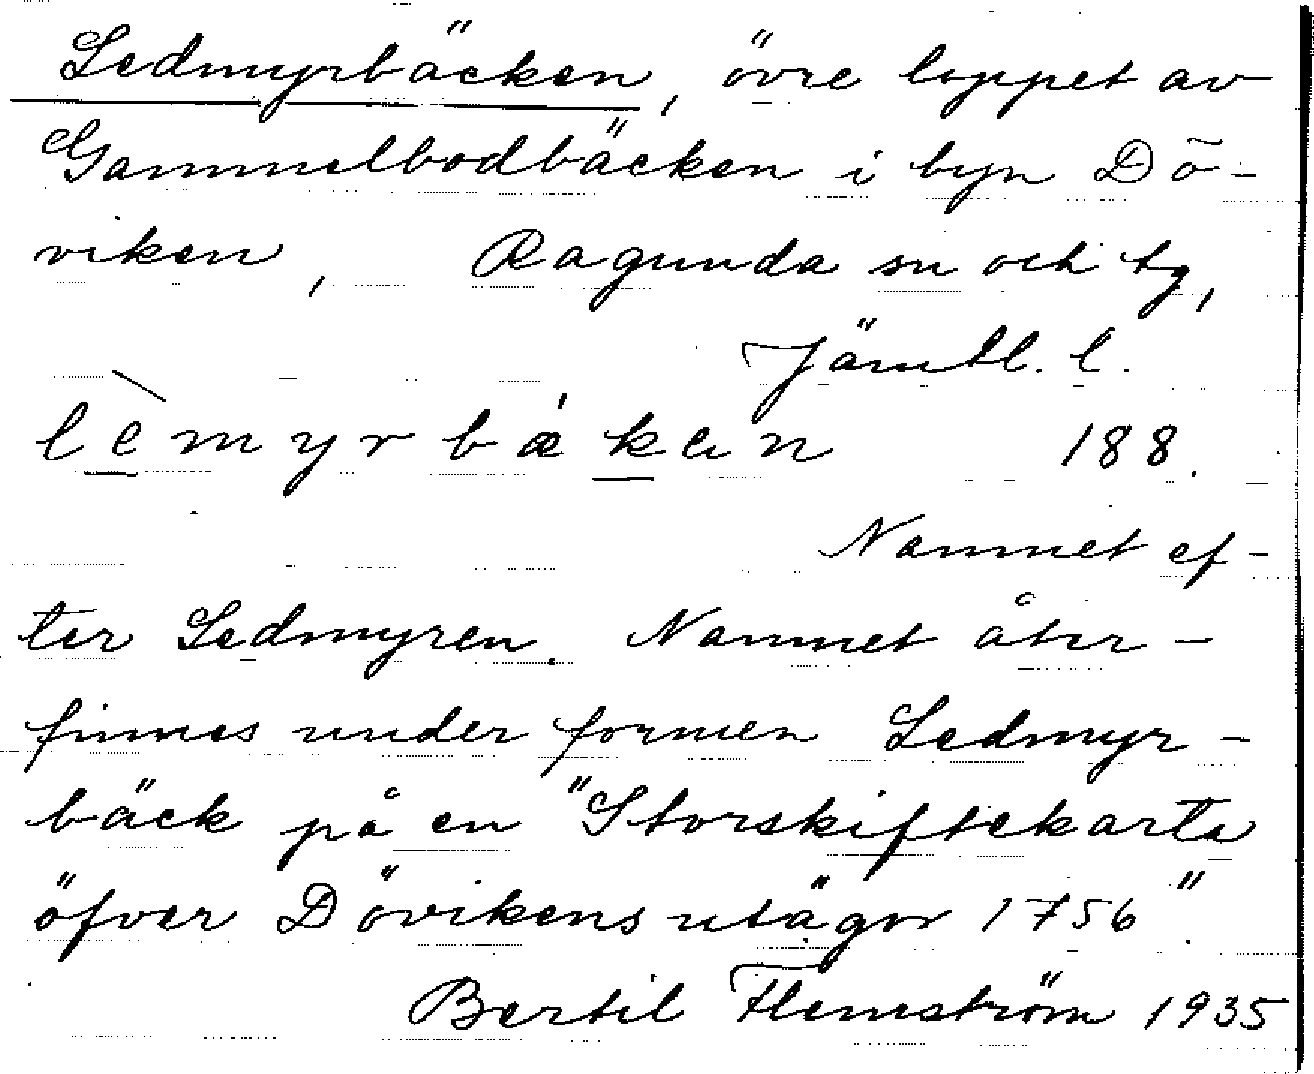 Ledmyrbäcken, övre loppet av
Gammelbodbäcken i byn Dö-
viken, Ragunda sn och tg,
Jämtl. l.
lèmyrbǽken 188.
Namnet ef-
ter Ledmyren. Namnet åter-
finnes under formen Ledmyr-
bäck på en "Storskiftekarta
öfver Dövikens utägor 1756".
Bertil Flemström 1935